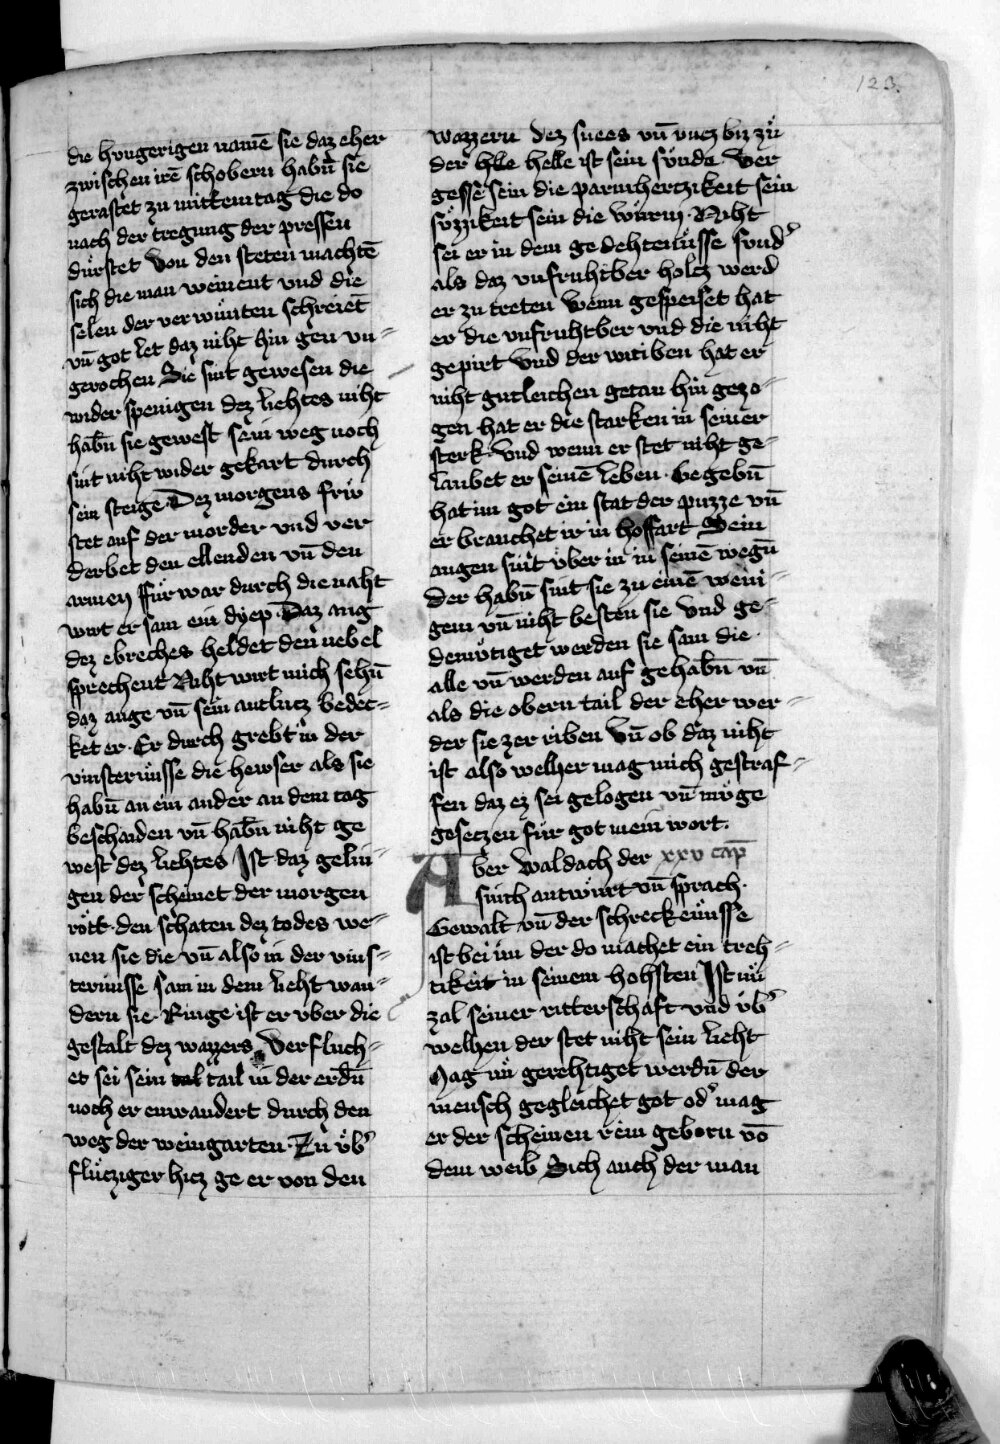 123.
die hungerigen namē sie daz eher
zwischen irē schobern habn̄ sie
gerastet zu mittemtag die do
nach der tregung der pressen
dürstet Von den steten machtē
sich die man weinent vnd die
selen der verwunten schreiēt
vn̄ got let daz niht hin gen vn⸗
gerochen Sie sint gewesen die
wider spenigen dez liehtes niht
habn̄ sie gewest sein weg noch
sint niht wider gekart durch
sein steige Dez morgens frür
stet auf der morder vnd ver
derbet den ellenden vn̄ den
armen ffürwar durch die naht
wirt er sam ein dyep Daz aug
dez ebreches heldet den nebel
sprechent Niht wirt mich sehn̄
daz auge vn̄ sein antlutz bedec⸗
ket er. Er durch grebt in der
vinsternüsse die hewser als sie
habn̄ an ein ander an dem tag
beschaiden vn̄ habn̄ niht ge
west dez liehtes Ist daz gelin⸗
gen der scheinet der morgen
röt den schaten dez todes we⸗
nen sie die vn̄ also in der vins⸗
ternisse sam in dem lieht wan⸗
dern sie Ringe ist er vber die
gestalt dez wazzers Verfluch⸗
et sei sein tal tail in der erdn̄
noch er enwandert durch den
weg der weingarten. Zu vb᾽
flützziger hicz ge er von den
wazzern dez snees vn̄ vncz biz zü
der hlle helle ist sein sünde Ver
gesse sein die parmherczikeit sein
süzzikeit sein die würm. Niht
sei er in dem gedehtenüsse sund᾽
als daz vnfruhtber holcz werd
er zu treten Wenn gespeiset hat
er die vnfruhtber vnd die niht
gepirt Vnd der witiben hat er
niht gutleichen getan hin gezo⸗
gen hat er die starken in seiner
sterk. Vnd wenn er stet niht ge⸗
laubet er seinē leben. Gegebn̄
hat im got ein stat der puzze vn̄
er brauchet ir in hoffart Sein
augen sint vber in in seinē wegn̄
Der habn̄ sint sie zu einē weni⸗
gem vn̄ niht besten sie Vnd ge⸗
demütiget werden sie sam die
alle vn̄ werden auf gehabn̄ vn̄
als die obern tail der eher wer⸗
der sie zer riben Vn̄ ob daz niht
ist also welher mag mich gestraf⸗
fen daz ez sei gelogen vn̄ müge
gesetzen für got mein wort.
Aber Waldach der xxv cap̄
suich antwürt vn̄ sprach.
Gewalt vn̄ der schreckenüsse
ist bei im der do machet ein treh⸗
tikeit in seinem hohsten Ist nü
zal seiner ritterschaft vnd vb᾽
welhen der stet niht sein lieht
Mag nü gerehtiget werdn̄ der
mensch gegleichet got od᾽ mag
er der scheinen rein geborn vō
dem weib Sich auch der man